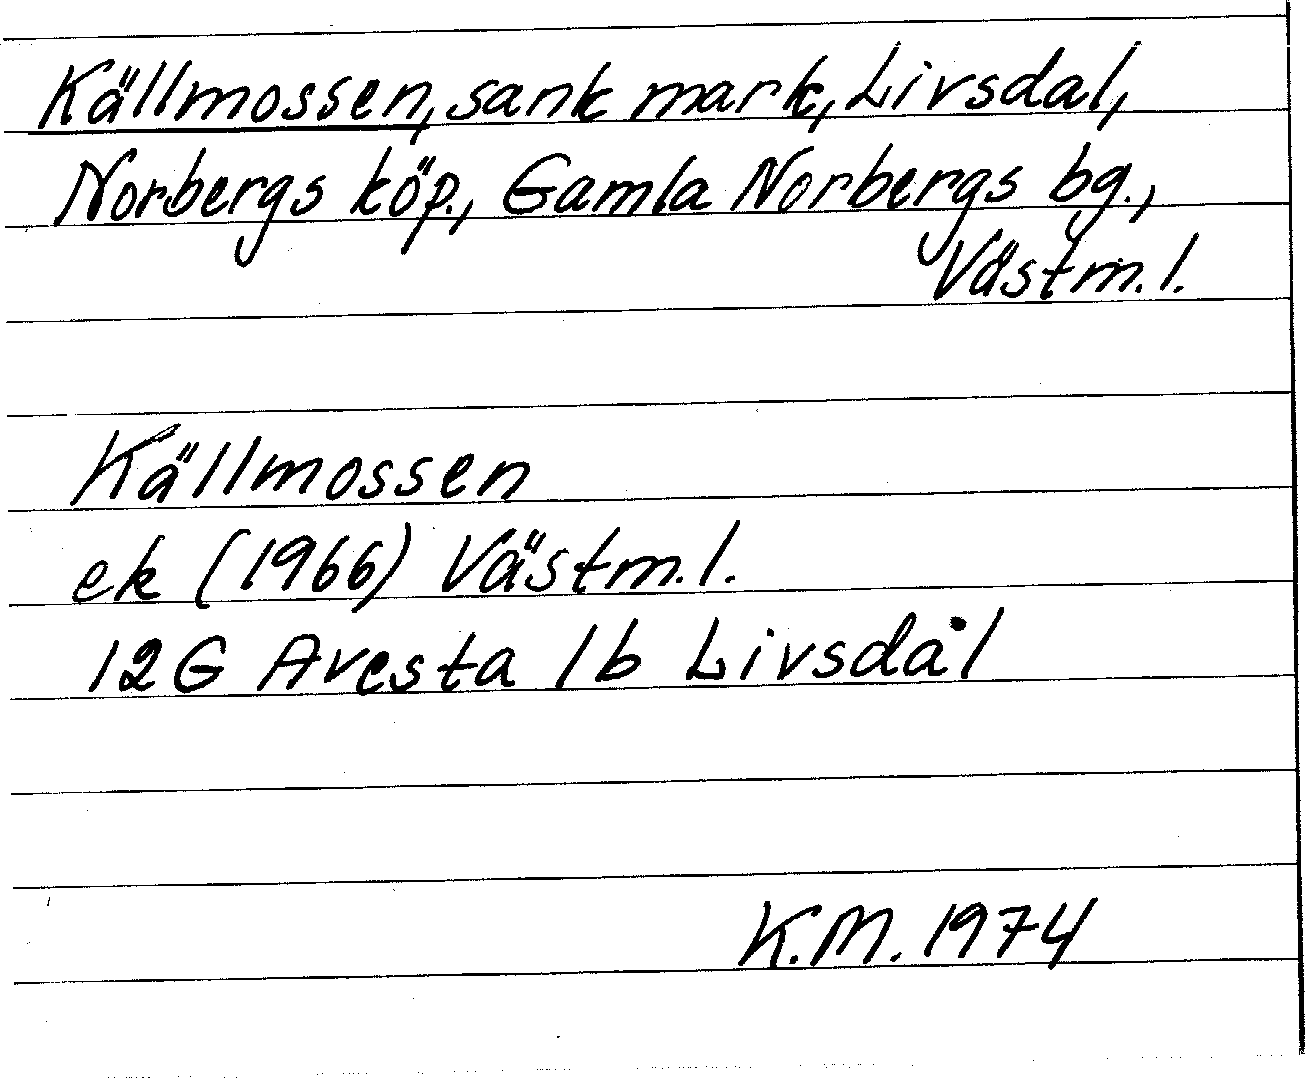 Källmossen, sank mark, Livsdal,
Norbergs köp., Gamla Norbergs bg.,
Västm.l.
Källmossen
ek (1966) Västm.l.
12G Avesta 1b Livsdål
K.M. 1974